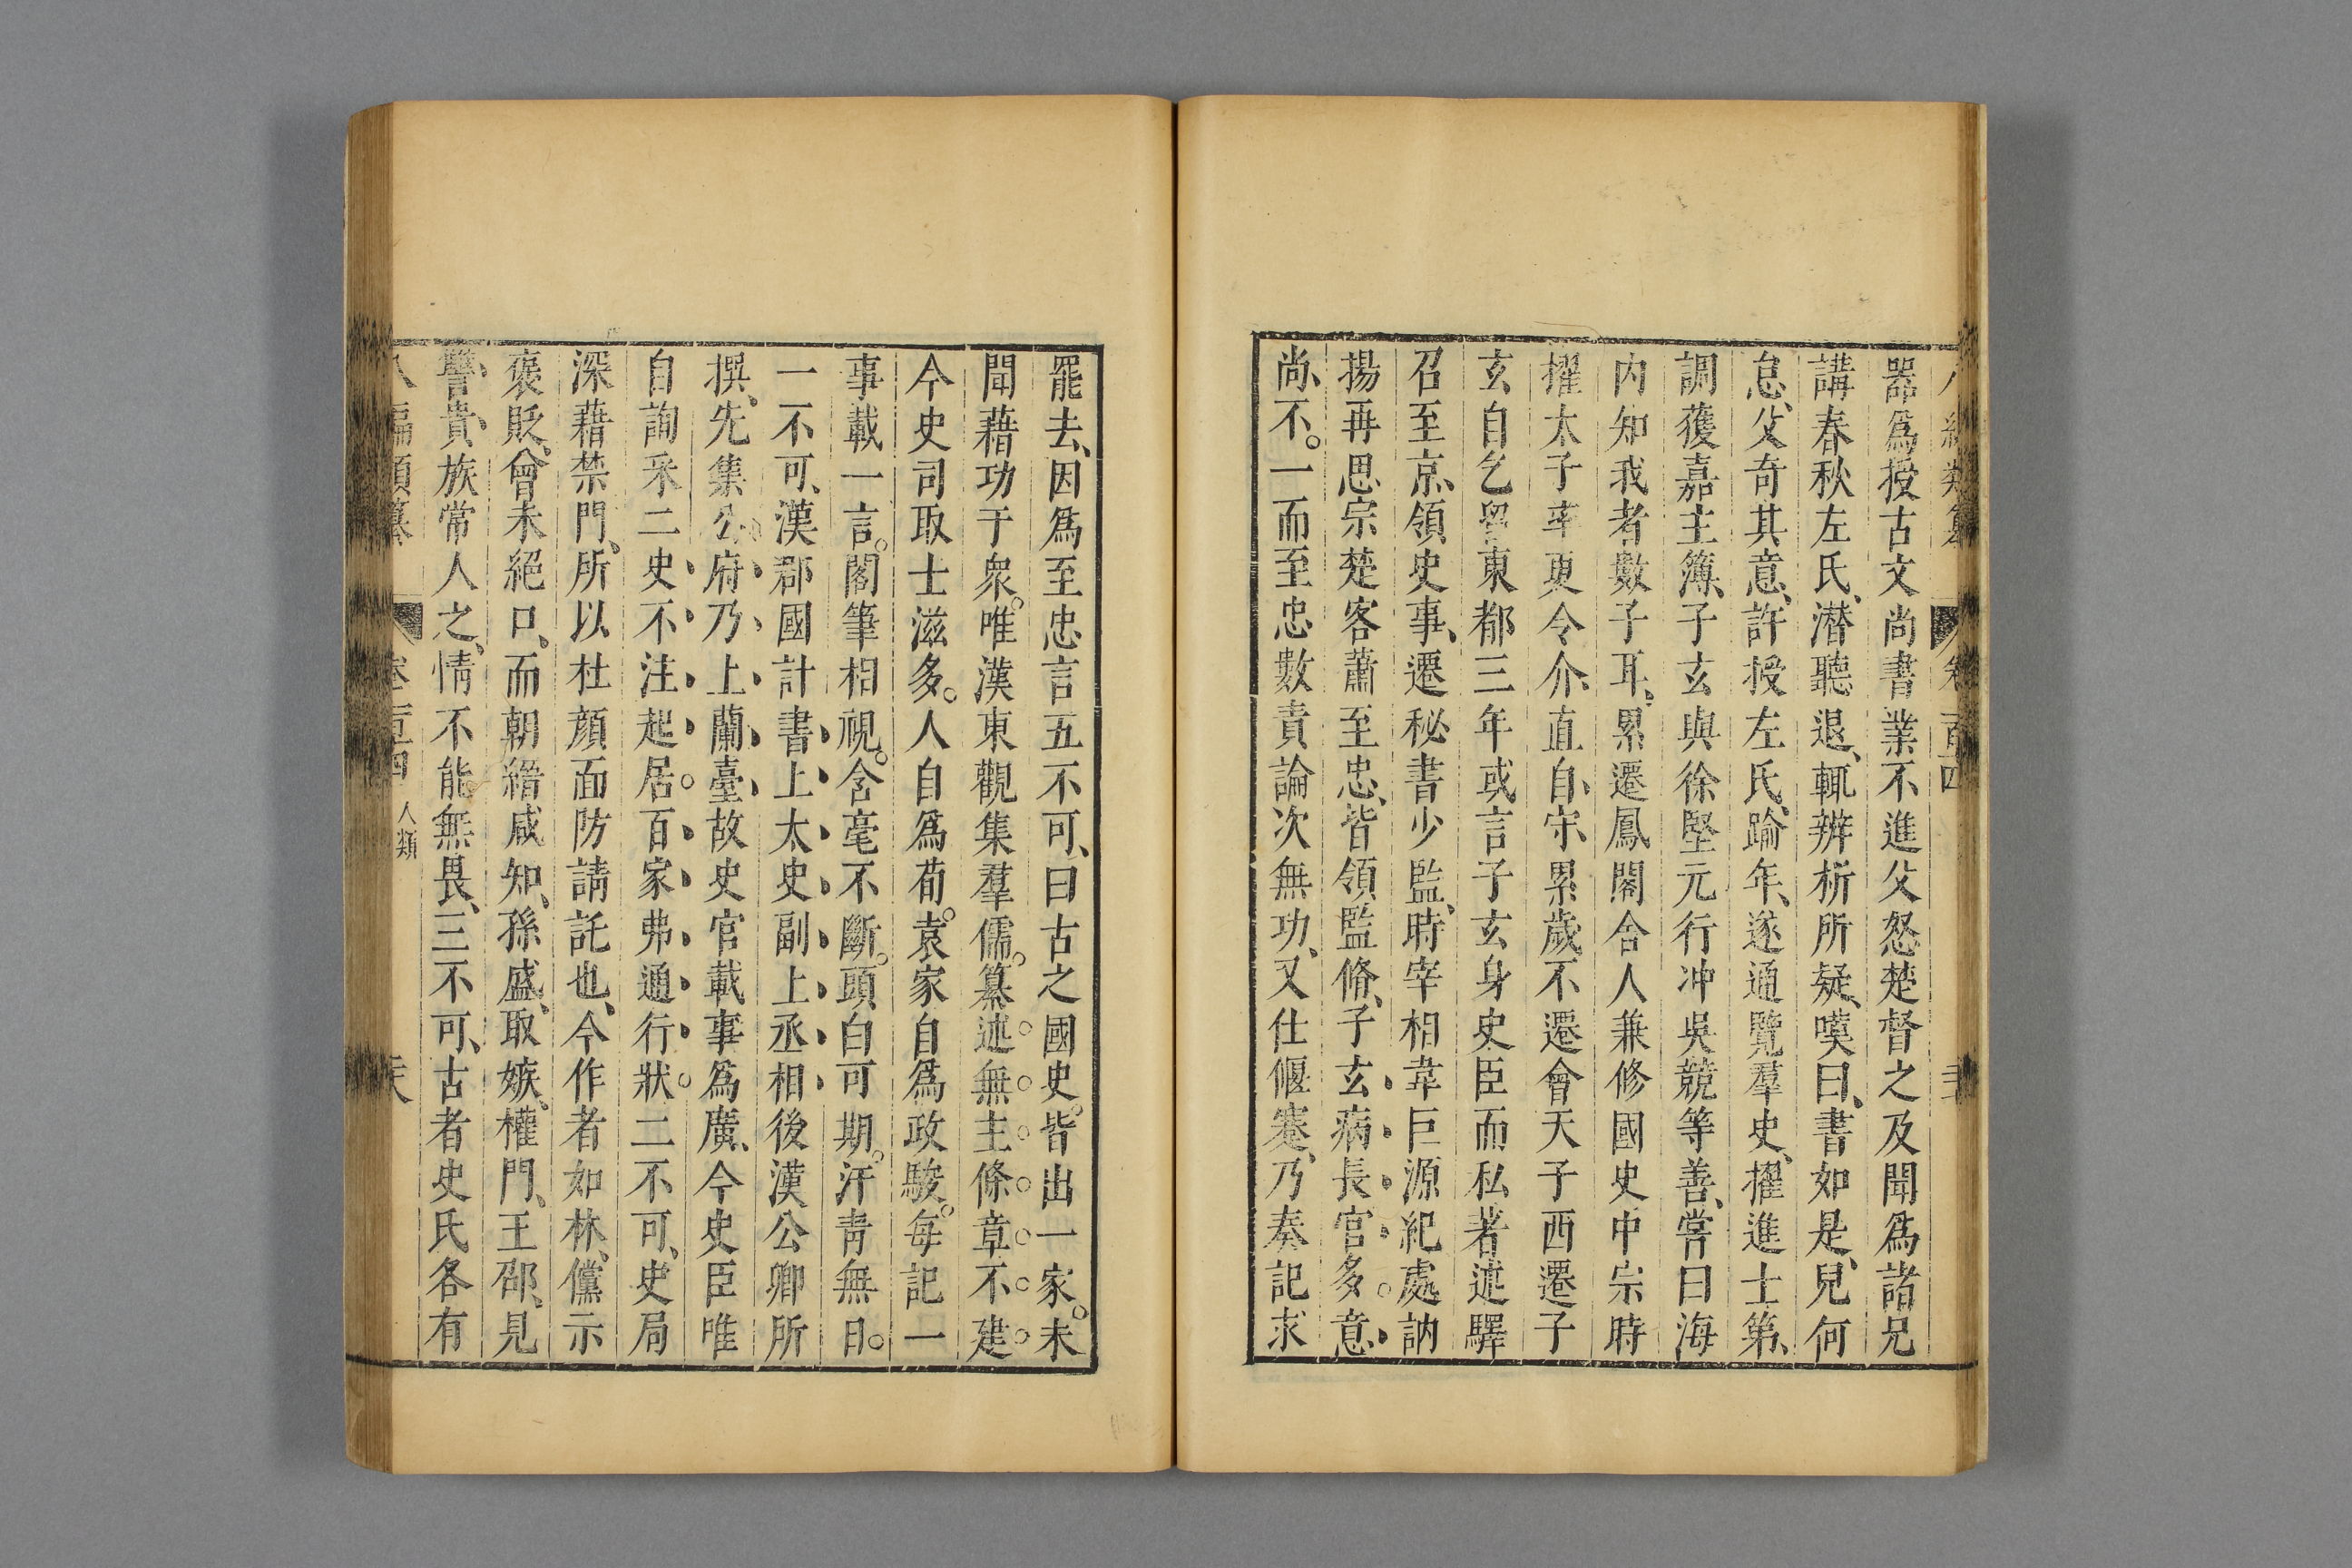 器爲授古文尚書業不進父怒楚督之及聞爲諸兄
講春秋左氏、潜聽退、輒辨析所疑、嘆曰、書如是、兒何
怠、父奇其意、許授左氏、踰年、遂通覽羣史、擢進士第、
調獲嘉主簿、子玄與徐堅元行冲吳競等善、嘗曰海
内知我者數子耳、累遷鳳閣舍人兼修國史中宗時
擢太子率更令介直自守、累歲不遷會天子西還子
玄自乞留東都三年或言子玄身史臣而私著述驛
召至京、領史事、遷秘書少監、時宰相韋巨源紀處訥
揚再思宗楚客蕭至忠、皆領監脩、子玄病長官多意
尚不。一而至忠數責論次無功、又仕偃蹇、乃奏記求
罷去、因爲至忠言五不可、曰古之國史。皆出一家。未
聞藉功于衆。唯漢東觀集羣儒。纂述無主條章不建
今史司取士滋多。人自爲荀。袁家自爲政駿。每記一
事載一言。閣筆相視。含毫不斷。頭白可期。汗青無日。
一不可、漢郡國計書上太史副上丞相後漢公卿所
撰、先集公府乃上蘭臺故史官載事爲廣、今史臣唯
自詢采二史不注起居。百家弗通行狀。二不可、史局
深藉禁門、所以杜顔面防請託也、今作者如林、儻示
褒貶、曾未絕口、而朝縉咸知、孫盛、取嫉、權門、王邵、見
讐、貴、族常人之、情不能無畏、三不可、古者史氏各有
人類